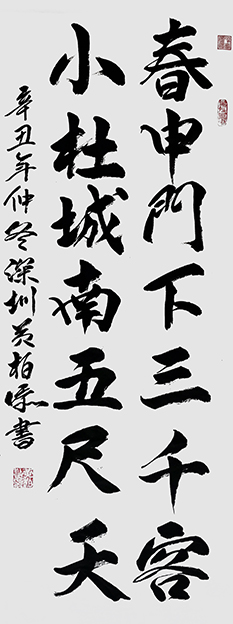 春申門下三千客
小杜城南五尺天
辛丑年仲冬深圳黄柏源書